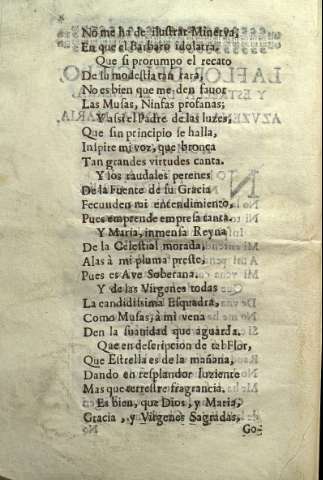 No me ha de iluſtrar Minerva,
En que el Barbaro idolatra.
Que ſi prorumpo el recato
De ſu modeſtia tan rara,
No es bien que me den fauor
Las Muſas, Ninfas profanas;
Y aſsi el Padre de las luzes,
Que ſin principio ſe halla,
Inſpire mi voz, que bronca
Tan grandes virtudes canta.
Y los raudales perenes
De la Fuente de ſu Gracia
Fecunden mi entendimiento,
Pues emprende empreſa tanta.
Y Maria, inmenſa Reyna
De la Celeſtial morada,
Alas à mi pluma preſte,
Pues es Ave Soberana.
Y de las Virgenes todas
La candidiſsima Eſquadra,
Como Muſas, à mi vena
Den la ſuauidad que aguarda.
Que en deſcripcion de tal Flor,
Que Eſtrella es de la mañana,
Dando en reſplandor luziente
Mas que terreſtre fragrancia.
Es bien, que Dios, y Maria,
Gracia, y Virgenes Sagradas,
Go-